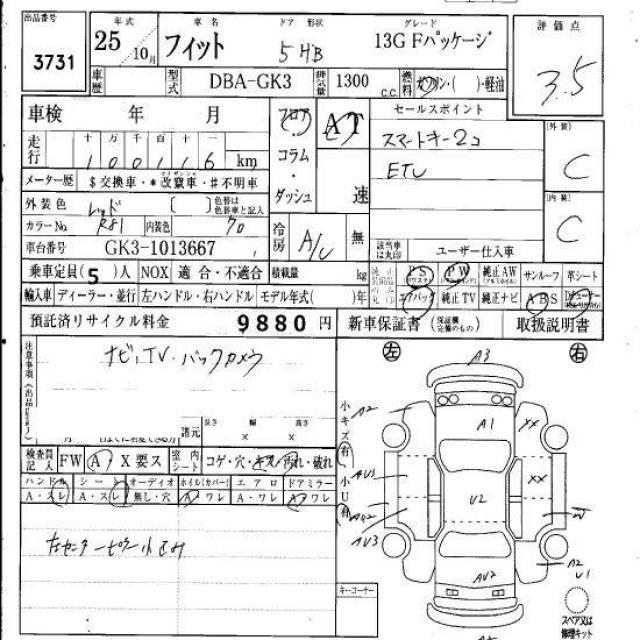 出品番号 3731
年式 25 10月 車名 フィット ドア 形状 5HB グレード 13G Fパッケージ
評価点 3.5
車歴 型式 DBA-GK3 排気量 1300 c.c. 燃料 ガソリン・( )・軽油
車検 年 月
フロア・コラム・ダッシュ
AT 速
セールスポイント
スマートキー2コ
ETC
走行 十 万 千 百 十 一
100116 km
メーター歴 $交換車・*改竄車・#不明車
外装 C
内装 C
外装色 レッド [ ] 色替は色替車と記入
カラーNo. R81 内装色 70
冷房 A/C 無
車台番号 GK3-1013667
該当車は丸印 ユーザー仕入車
乗車定員(5)人 NOX 適合・不適合 積載量 kg
PS PW 純正AW サンルーフ 革シート
輸入車 ディーラー・並行 左ハンドル・右ハンドル モデル年式( )年
エアバック 純正TV 純正ナビ ABS
預託済リサイクル料金 9880円
新車保証書 取扱説明書
注意事項
ナビ、TV・バックカメラ
諸元 長さ 幅 高さ
× × ×
検査員記入 FW A X要ス 室内シート コゲ・穴・キズ・汚れ・破れ
ハンドル シート オーディオ ホイル(カバー) エアロ ドアミラー
A・スレ A・スレ 無し・穴 A ワレ A・ワレ A ワレ
左センターピラー小凹み
キーコーナー
左 右
小キズ有
小U有
A3
A2
A1 XX
AU1 XX
U2
AU2
AU3
A2
U1
AU2
スペア又は修理キット